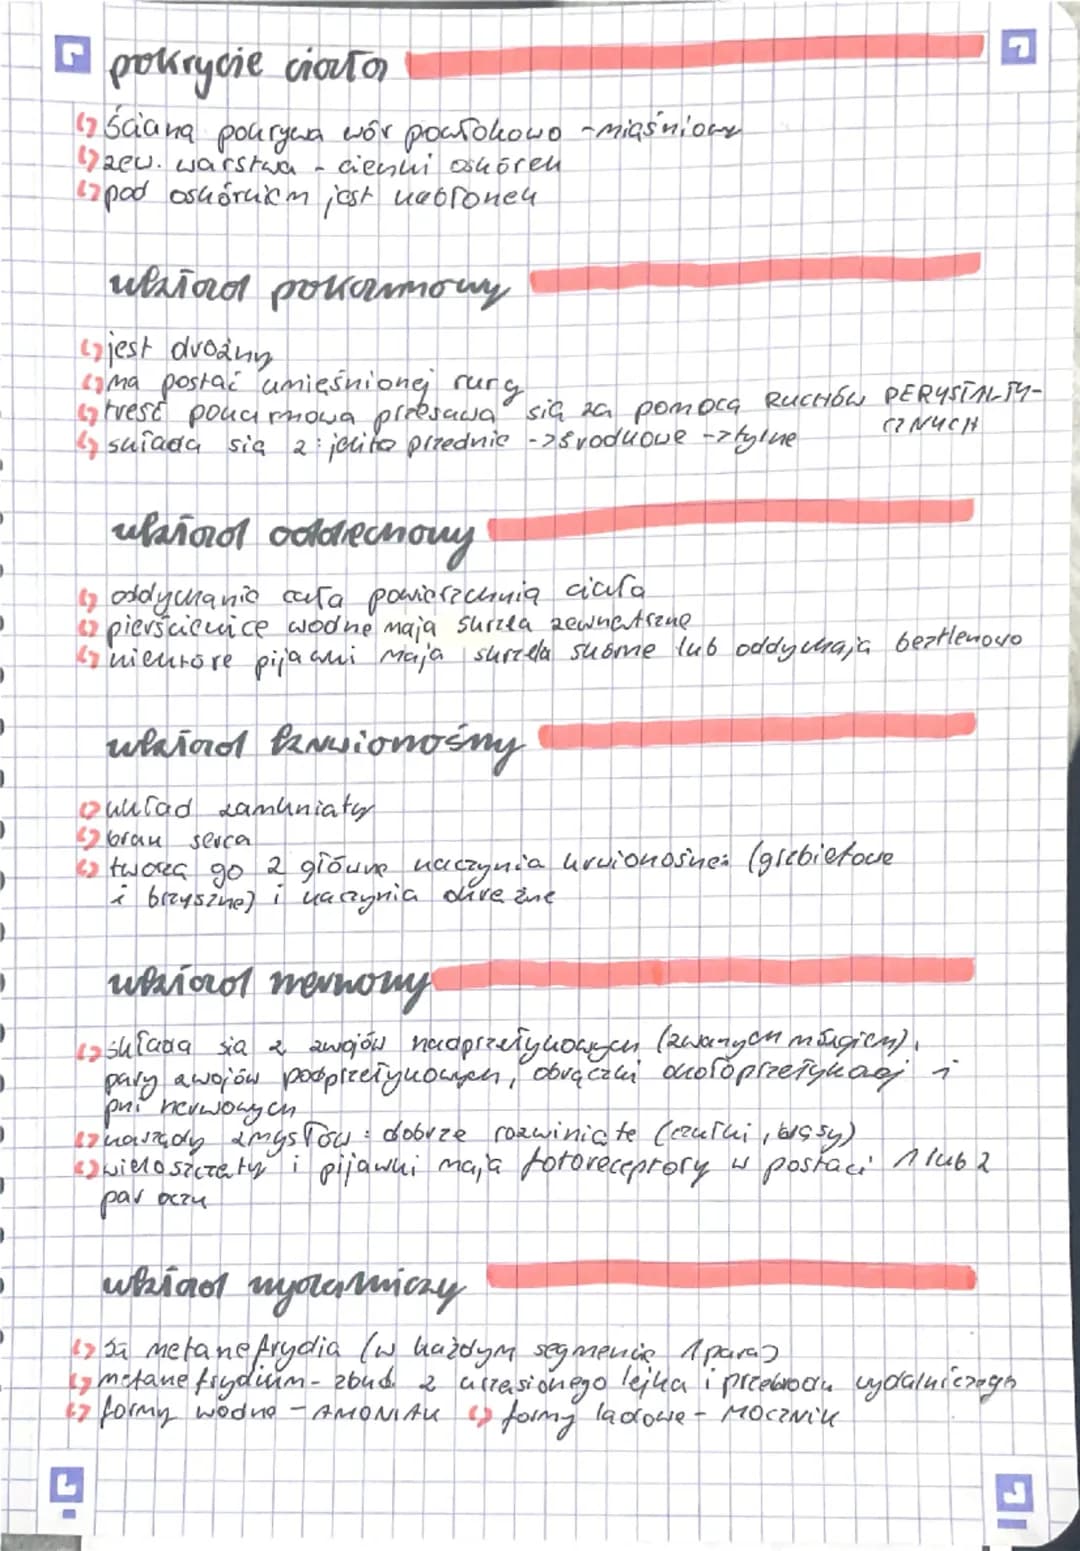 pokrycie ciała
ścianą pokrywa wór powłokowo - mięśniowy
zew. warstwa - cienki oskórek
pod oskórkiem jest nabłonek
układ pokarmowy
jest drożny
ma postać umięśnionej rury
treść pokarmowa przesuwa się za pomocą RUCHÓW PERYSTALTY-
CZNYCH
składa się z: jelito przednie -> środkowe -> tylne
układ oddechowy
oddychanie całą powierzchnią ciała
pierścienice wodne mają skrzela zewnętrzne
niektóre pijawki mają skrzela skórne lub oddychają beztlenowo
układ krwionośny
układ zamknięty
brak serca
tworzą go 2 główne naczynia krwionośne: (grzbietowe
i brzyszne) i naczynia okrężne
układ nerwowy
składa się z zwojów nadprzełykowych (zwanych mózgiem),
pary zwojów podprzełykowych, obrączki okołoprzełykaej i
pni nerwowych
narządy zmysłów: dobrze rozwinięte (czułki, wąsy)
wieloszczety i pijawki mają fotoreceptory w postaci 1 lub 2
par oczu
układ wydalniczy
są metanefrydia (w każdym segmencie 1 para)
metanefrydium - zbud. z urzęsionego lejka i przewodu wydalniczego
formy wodne - AMONIAK formy lądowe - MOCZNIK